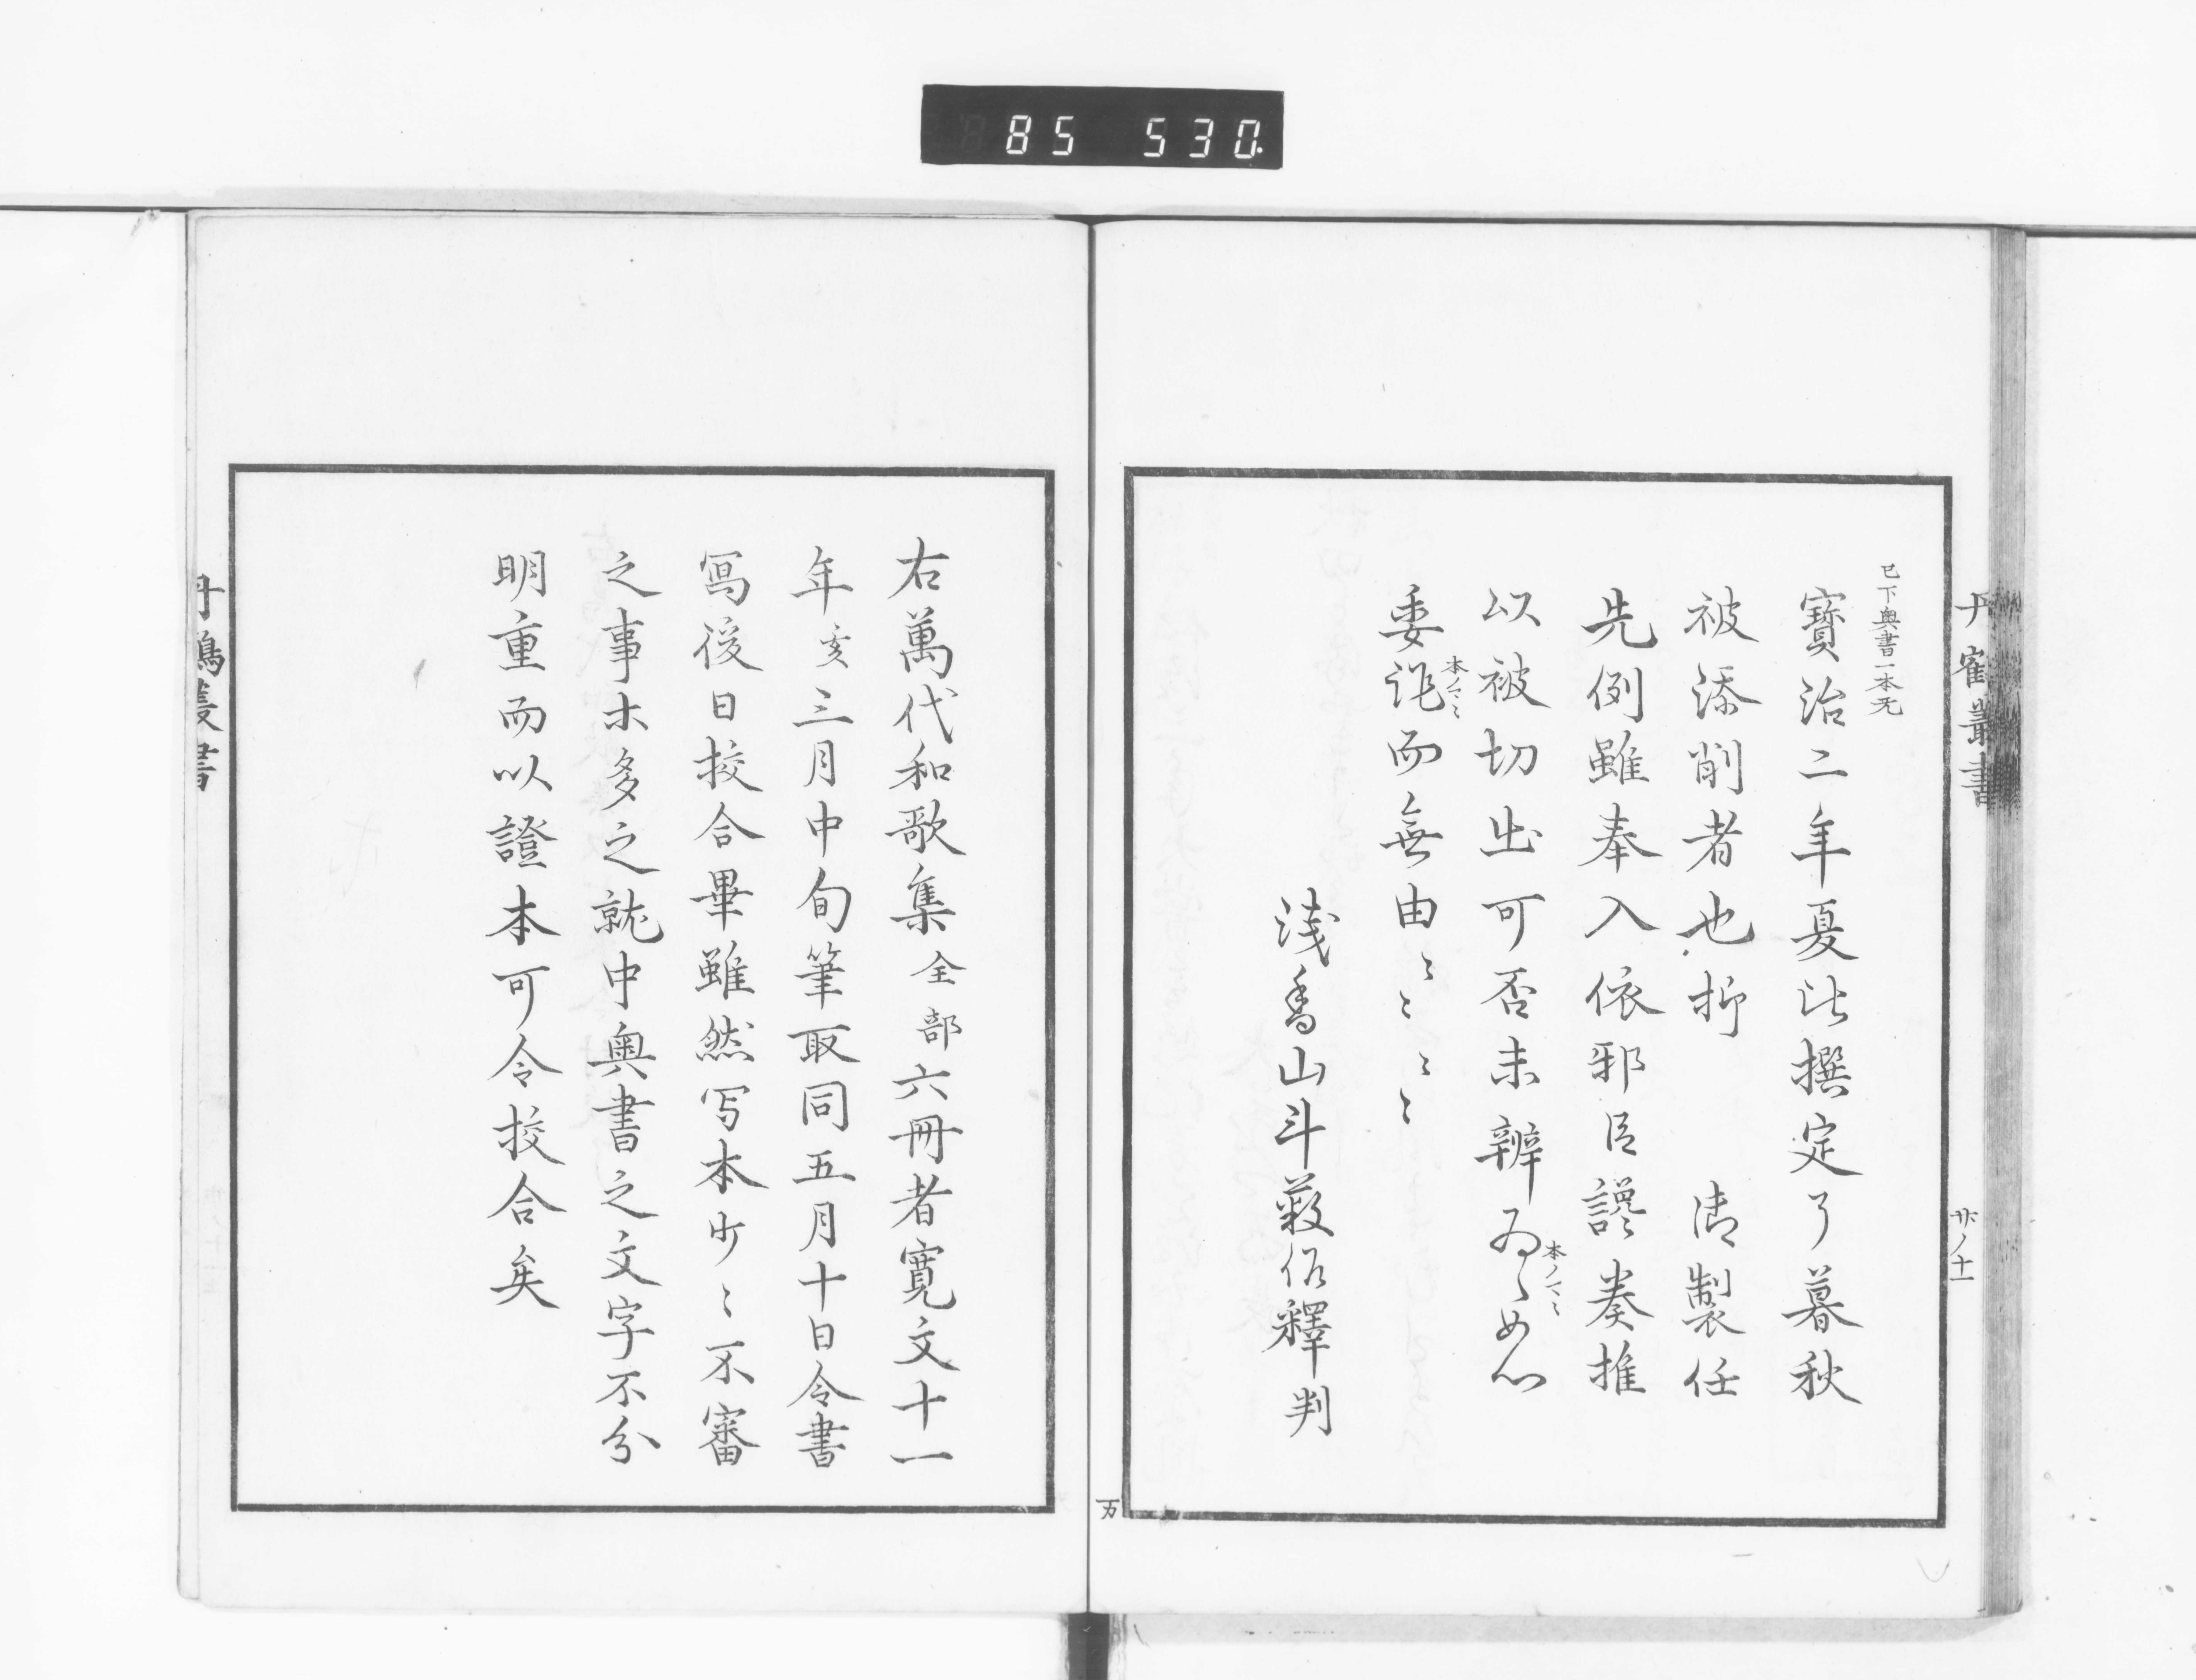 85 530.
丹鶴叢書
已下奥書一本无
寶治二年夏比撰定了暮秋
被添削者也抑　　御製任
先例雖奉入依邪臣讒奏推
以被切出可否未辨
本ノマヽ
委
本ノマヽ
而無由〻〻〻〻
浅香山斗藪侶釋判
右萬代和歌集全部六冊者寛文十一
年亥三月中旬筆取同五月十日令書
寫後日挍合畢雖然写本少〻不審
之事ホ多之就中奥書之文字不分
明重而以證本可令挍合矣
丹鶴叢書